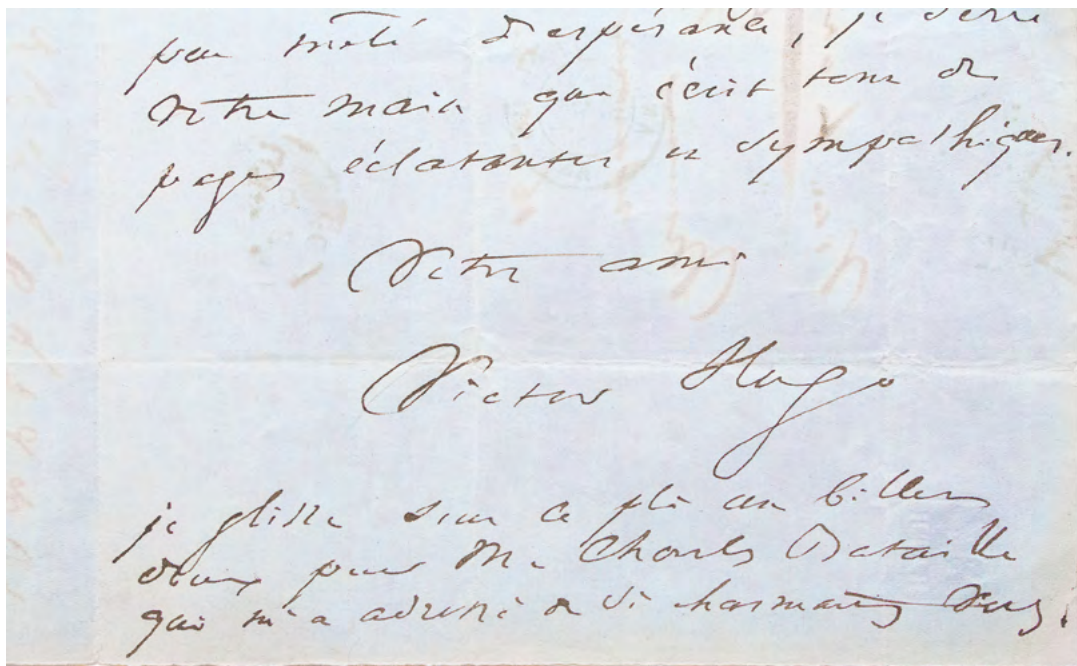 peu mêlé d'espérance, je serre
votre main qui écrit tant de
pages éclatantes et sympathiques.
Votre ami
Victor Hugo
je glisse sous ce pli un billet
doux pour M. Charles Bataille
qui m'a adressé de si charmants vers.